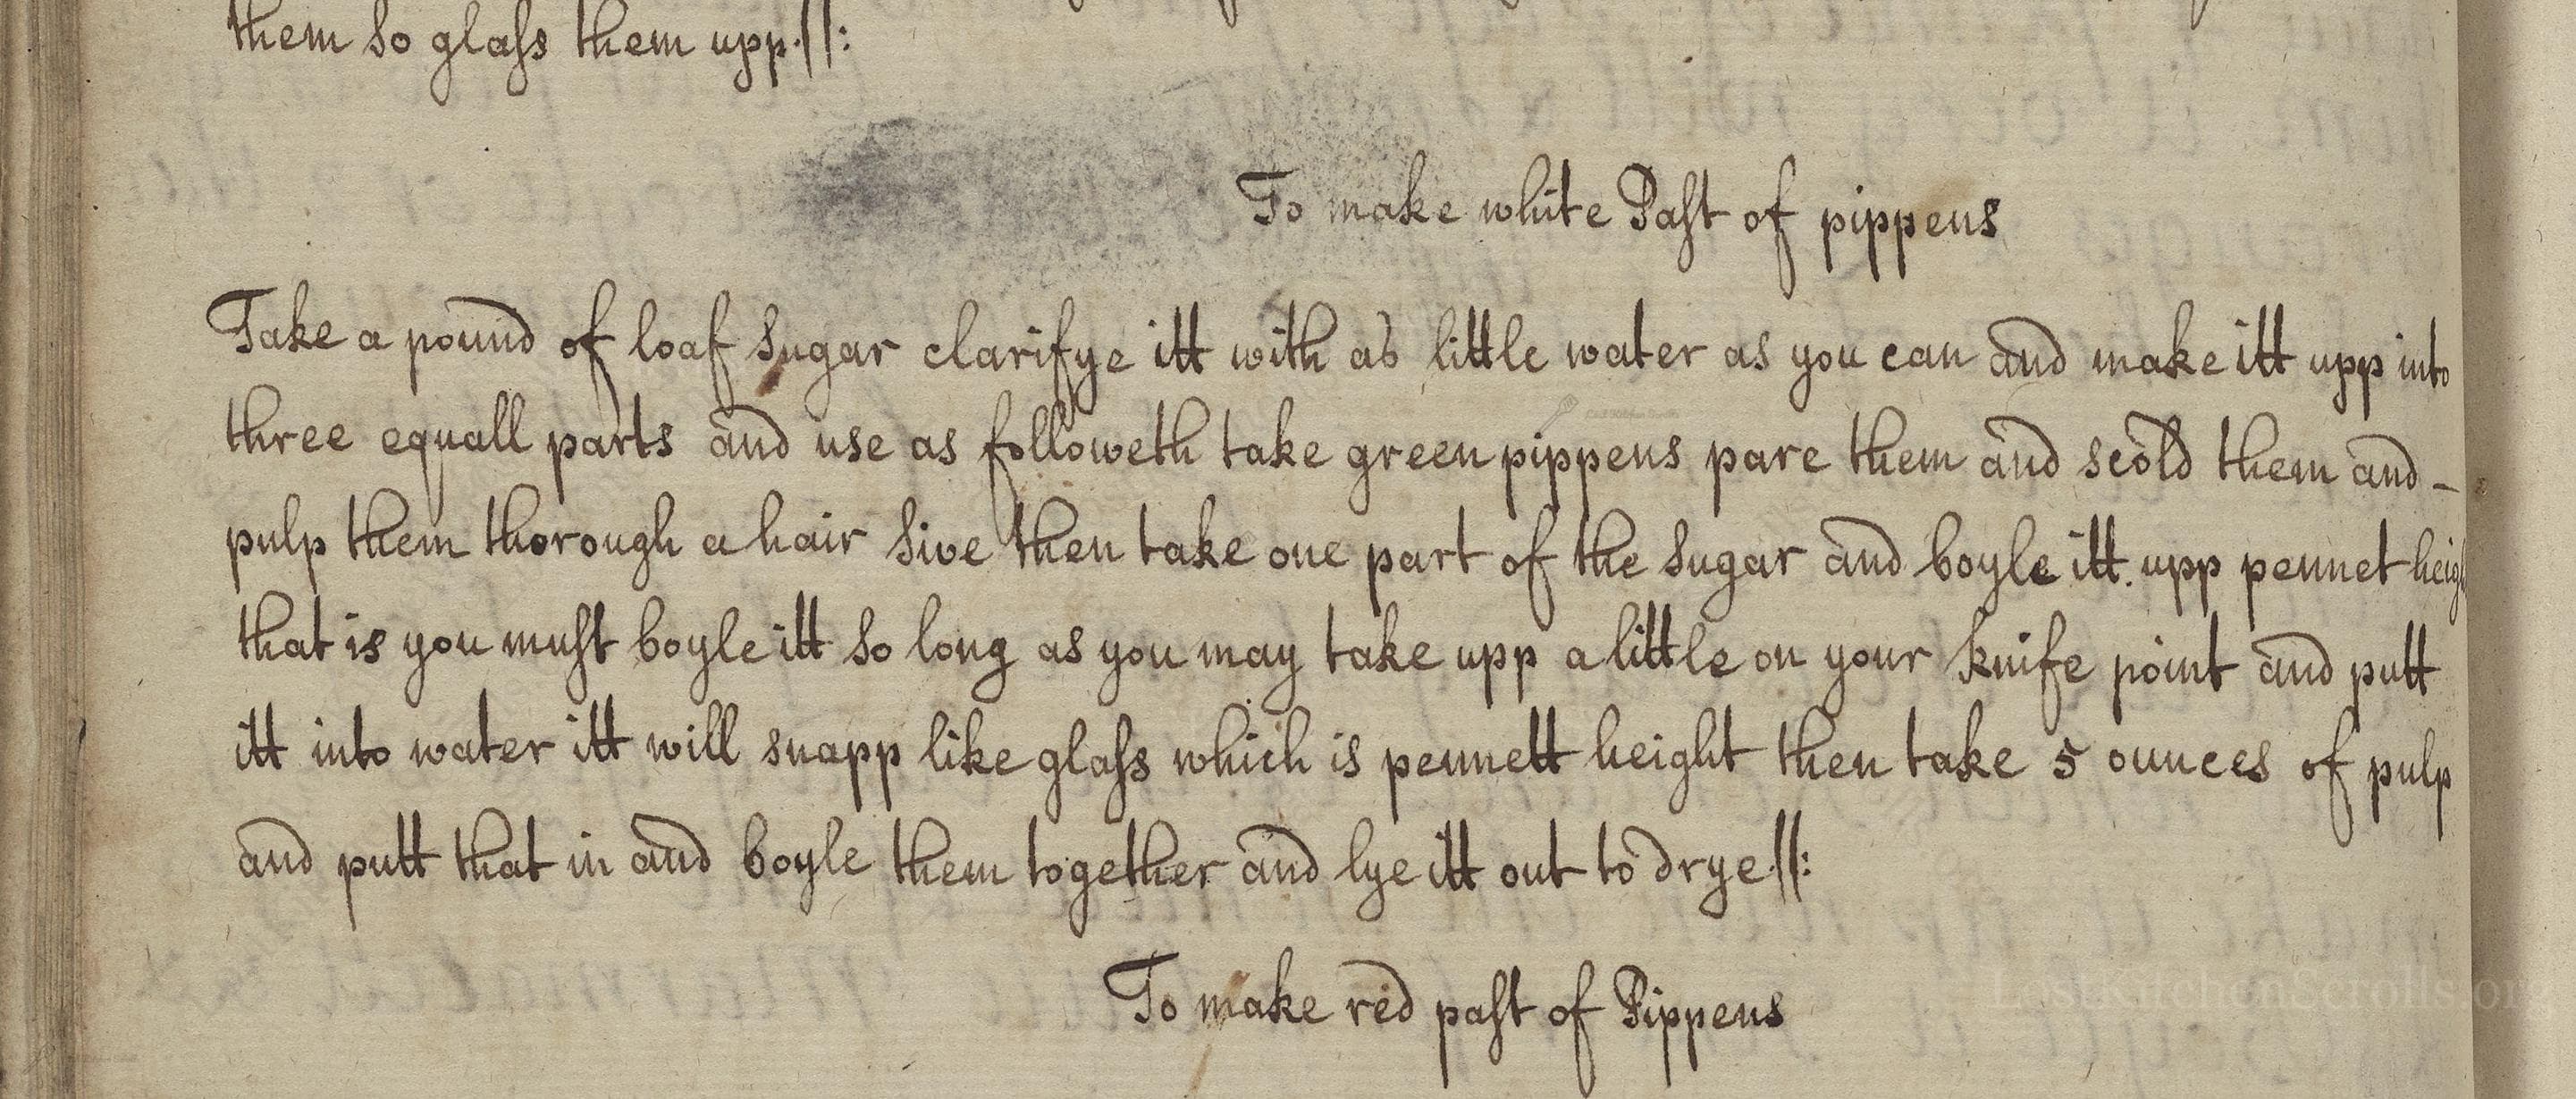 them so glass them upp.//:
To make white Past of pippens
Take a pound of loaf sugar clarifye itt with as little water as you can and make itt upp into
three equall parts and use as followeth take green pippens pare them and scold them and -
pulp them thorough a hair sive then take one part of the sugar and boyle itt. upp pennet heigh
that is you must boyle itt so long as you may take upp a little on your knife point and putt
itt into water itt will snapp like glass which is pennett height then take 5 ounces of pulp
and putt that in and boyle them together and lye itt out to drye.//:
To make red past of Pippens
LostKitchenScrolls.org